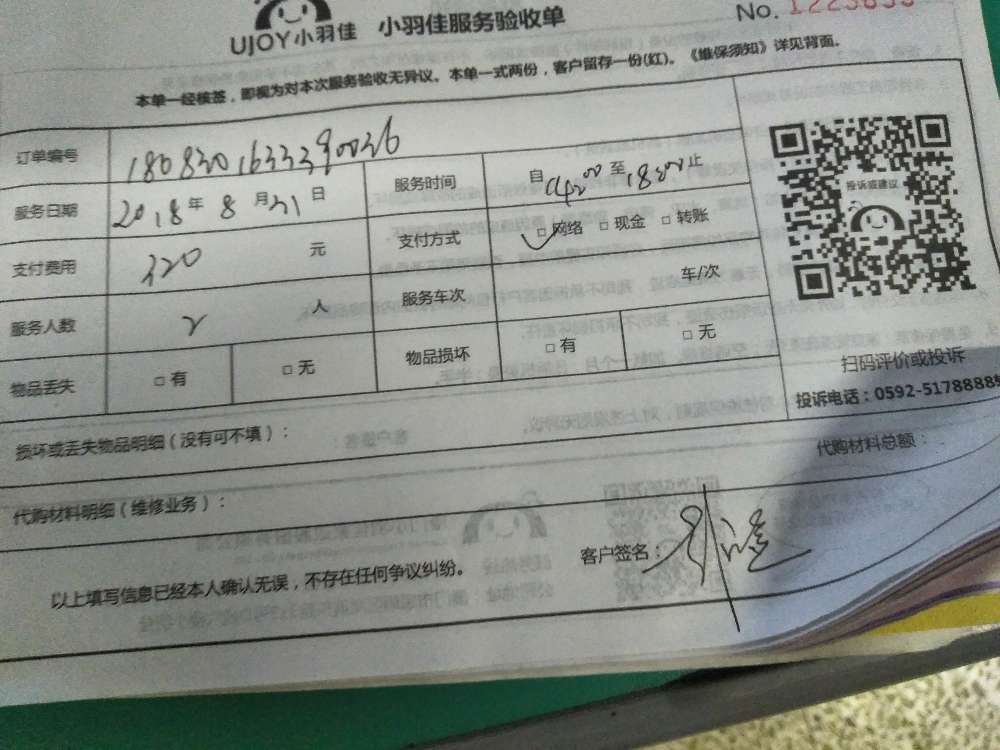 UJOY小羽佳 小羽佳服务验收单 No.
本单一经核签，即视为对本次服务验收无异议。本单一式两份，客户留存一份(红)。《维保须知》详见背面。
订单编号 1808301633390036 服务时间 自 至 18:00 止
服务日期 2018 年 8 月 31 日 支付方式 □ 网络 □ 现金 □ 转账
支付费用 320 元 服务车次 车/次
服务人数 2 人 物品损坏 □ 有 □ 无
物品丢失 □ 有 □ 无
投诉或建议
扫码评价或投诉
投诉电话：0592-5178888
损坏或丢失物品明细（没有可不填）：
代购材料明细（维修业务）： 代购材料总额：
以上填写信息已经本人确认无误，不存在任何争议纠纷。 客户签名：